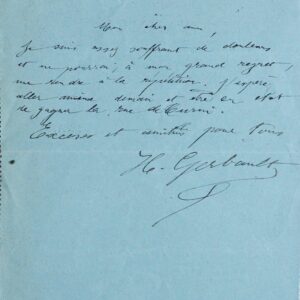 Mon cher ami,
Je suis assez souffrant de douleurs
et ne pourrai, à mon grand regret,
me rendre à la répétition. J'espère
aller mieux demain et être en état
de gagner la rue de
Excuses et amitiés pour tous
H. Gerbault